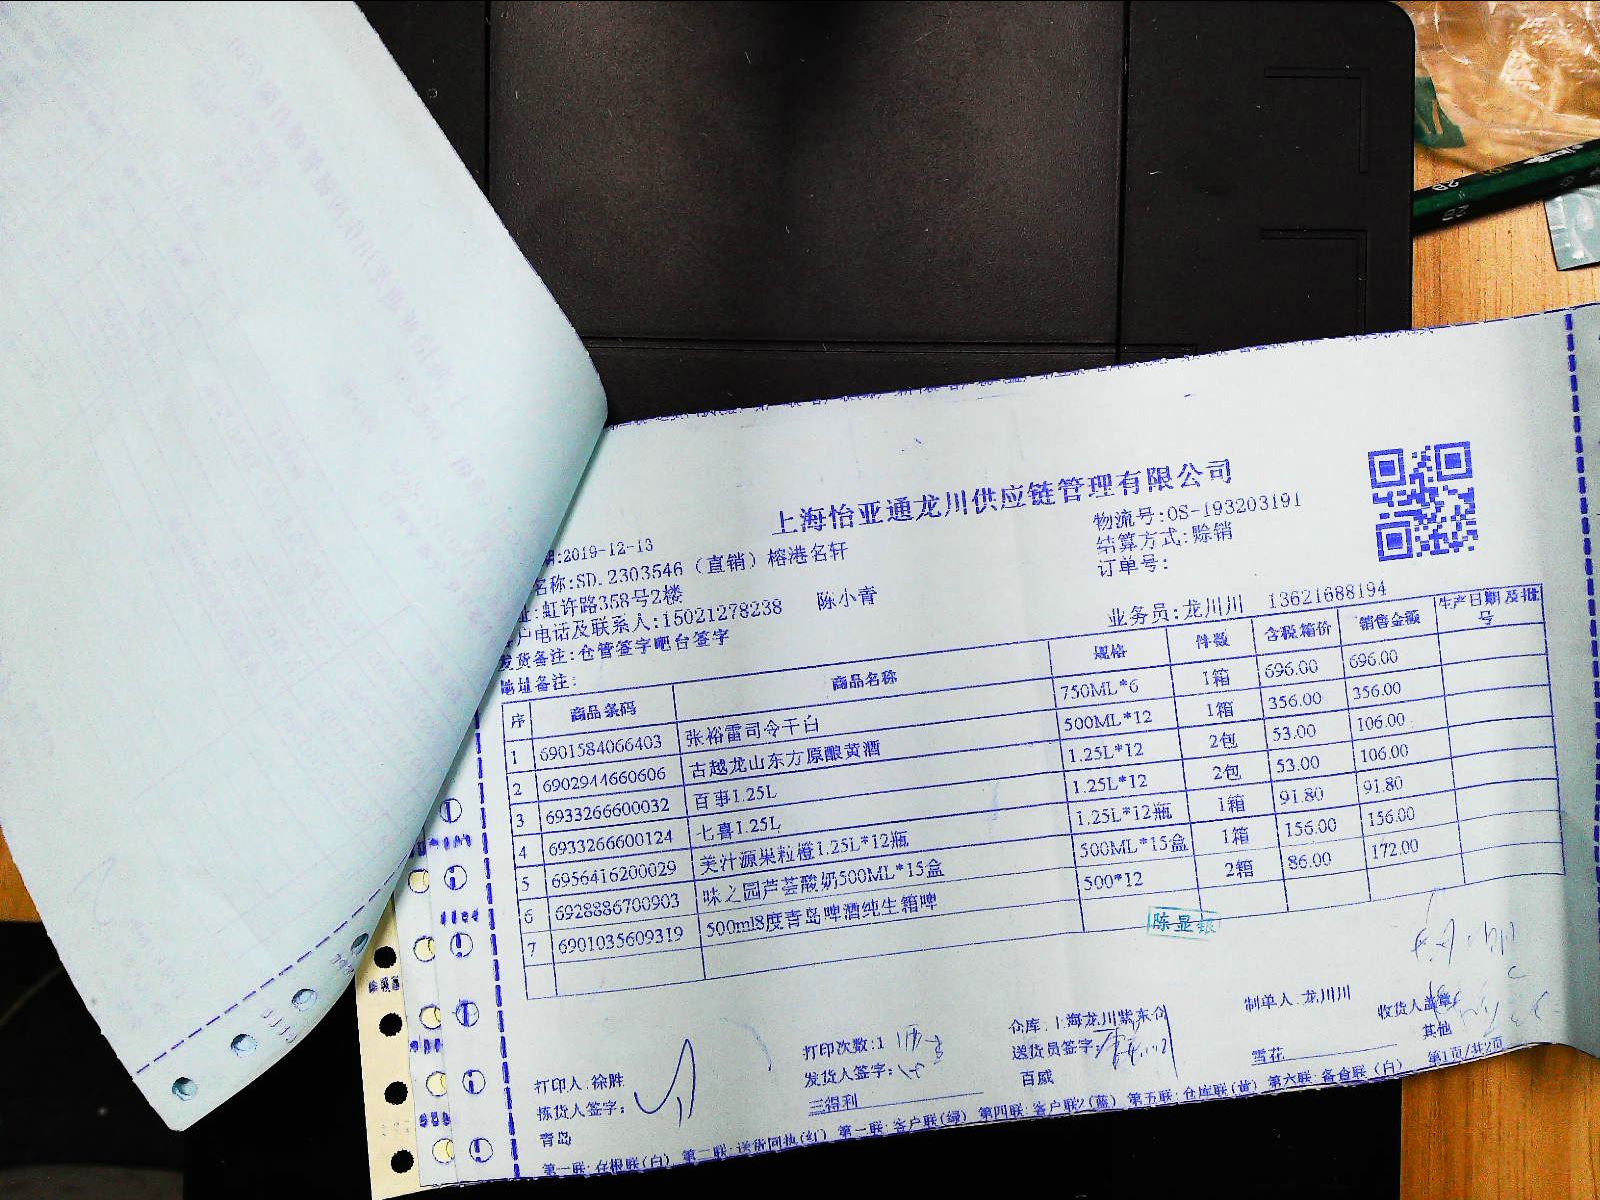 上海怡亚通龙川供应链管理有限公司
期:2019-12-13
物流号:OS-193203191
名称:SD.2303546（直销）榕港名轩
结算方式:赊销
址:虹许路358号2楼
订单号:
户电话及联系人:15021278238 陈小青
业务员:龙川川 13621688194
发货备注:仓管签字吧台签字
地址备注:
序 商品条码 商品名称 规格 件数 含税箱价 销售金额 生产日期及批号
1 6901584066403 张裕雷司令干白 750ML*6 1箱 696.00 696.00
2 6902944660606 古越龙山东方原酿黄酒 500ML*12 1箱 356.00 356.00
3 6933266600032 百事1.25L 1.25L*12 2包 53.00 106.00
4 6933266600124 七喜1.25L 1.25L*12 2包 53.00 106.00
5 6956416200029 美汁源果粒橙1.25L*12瓶 1.25L*12瓶 1箱 91.80 91.80
6 6928886700903 味之园芦荟酸奶500ML*15盒 500ML*15盒 1箱 156.00 156.00
7 6901035609319 500ml8度青岛啤酒纯生箱啤 500*12 2箱 86.00 172.00
陈显银
打印人:徐胜
打印次数:1
仓库:上海龙川紫东仓
制单人:龙川川
收货人盖章
拣货人签字:
发货人签字:
送货员签字:
其他
青岛
三得利
百威
雪花
第1页/共2页
第一联:存根联(白) 第二联:送货回执(红) 第一联:客户联(绿) 第四联:客户联2(蓝) 第五联:仓库联(黄) 第六联:备查联(白)
2B